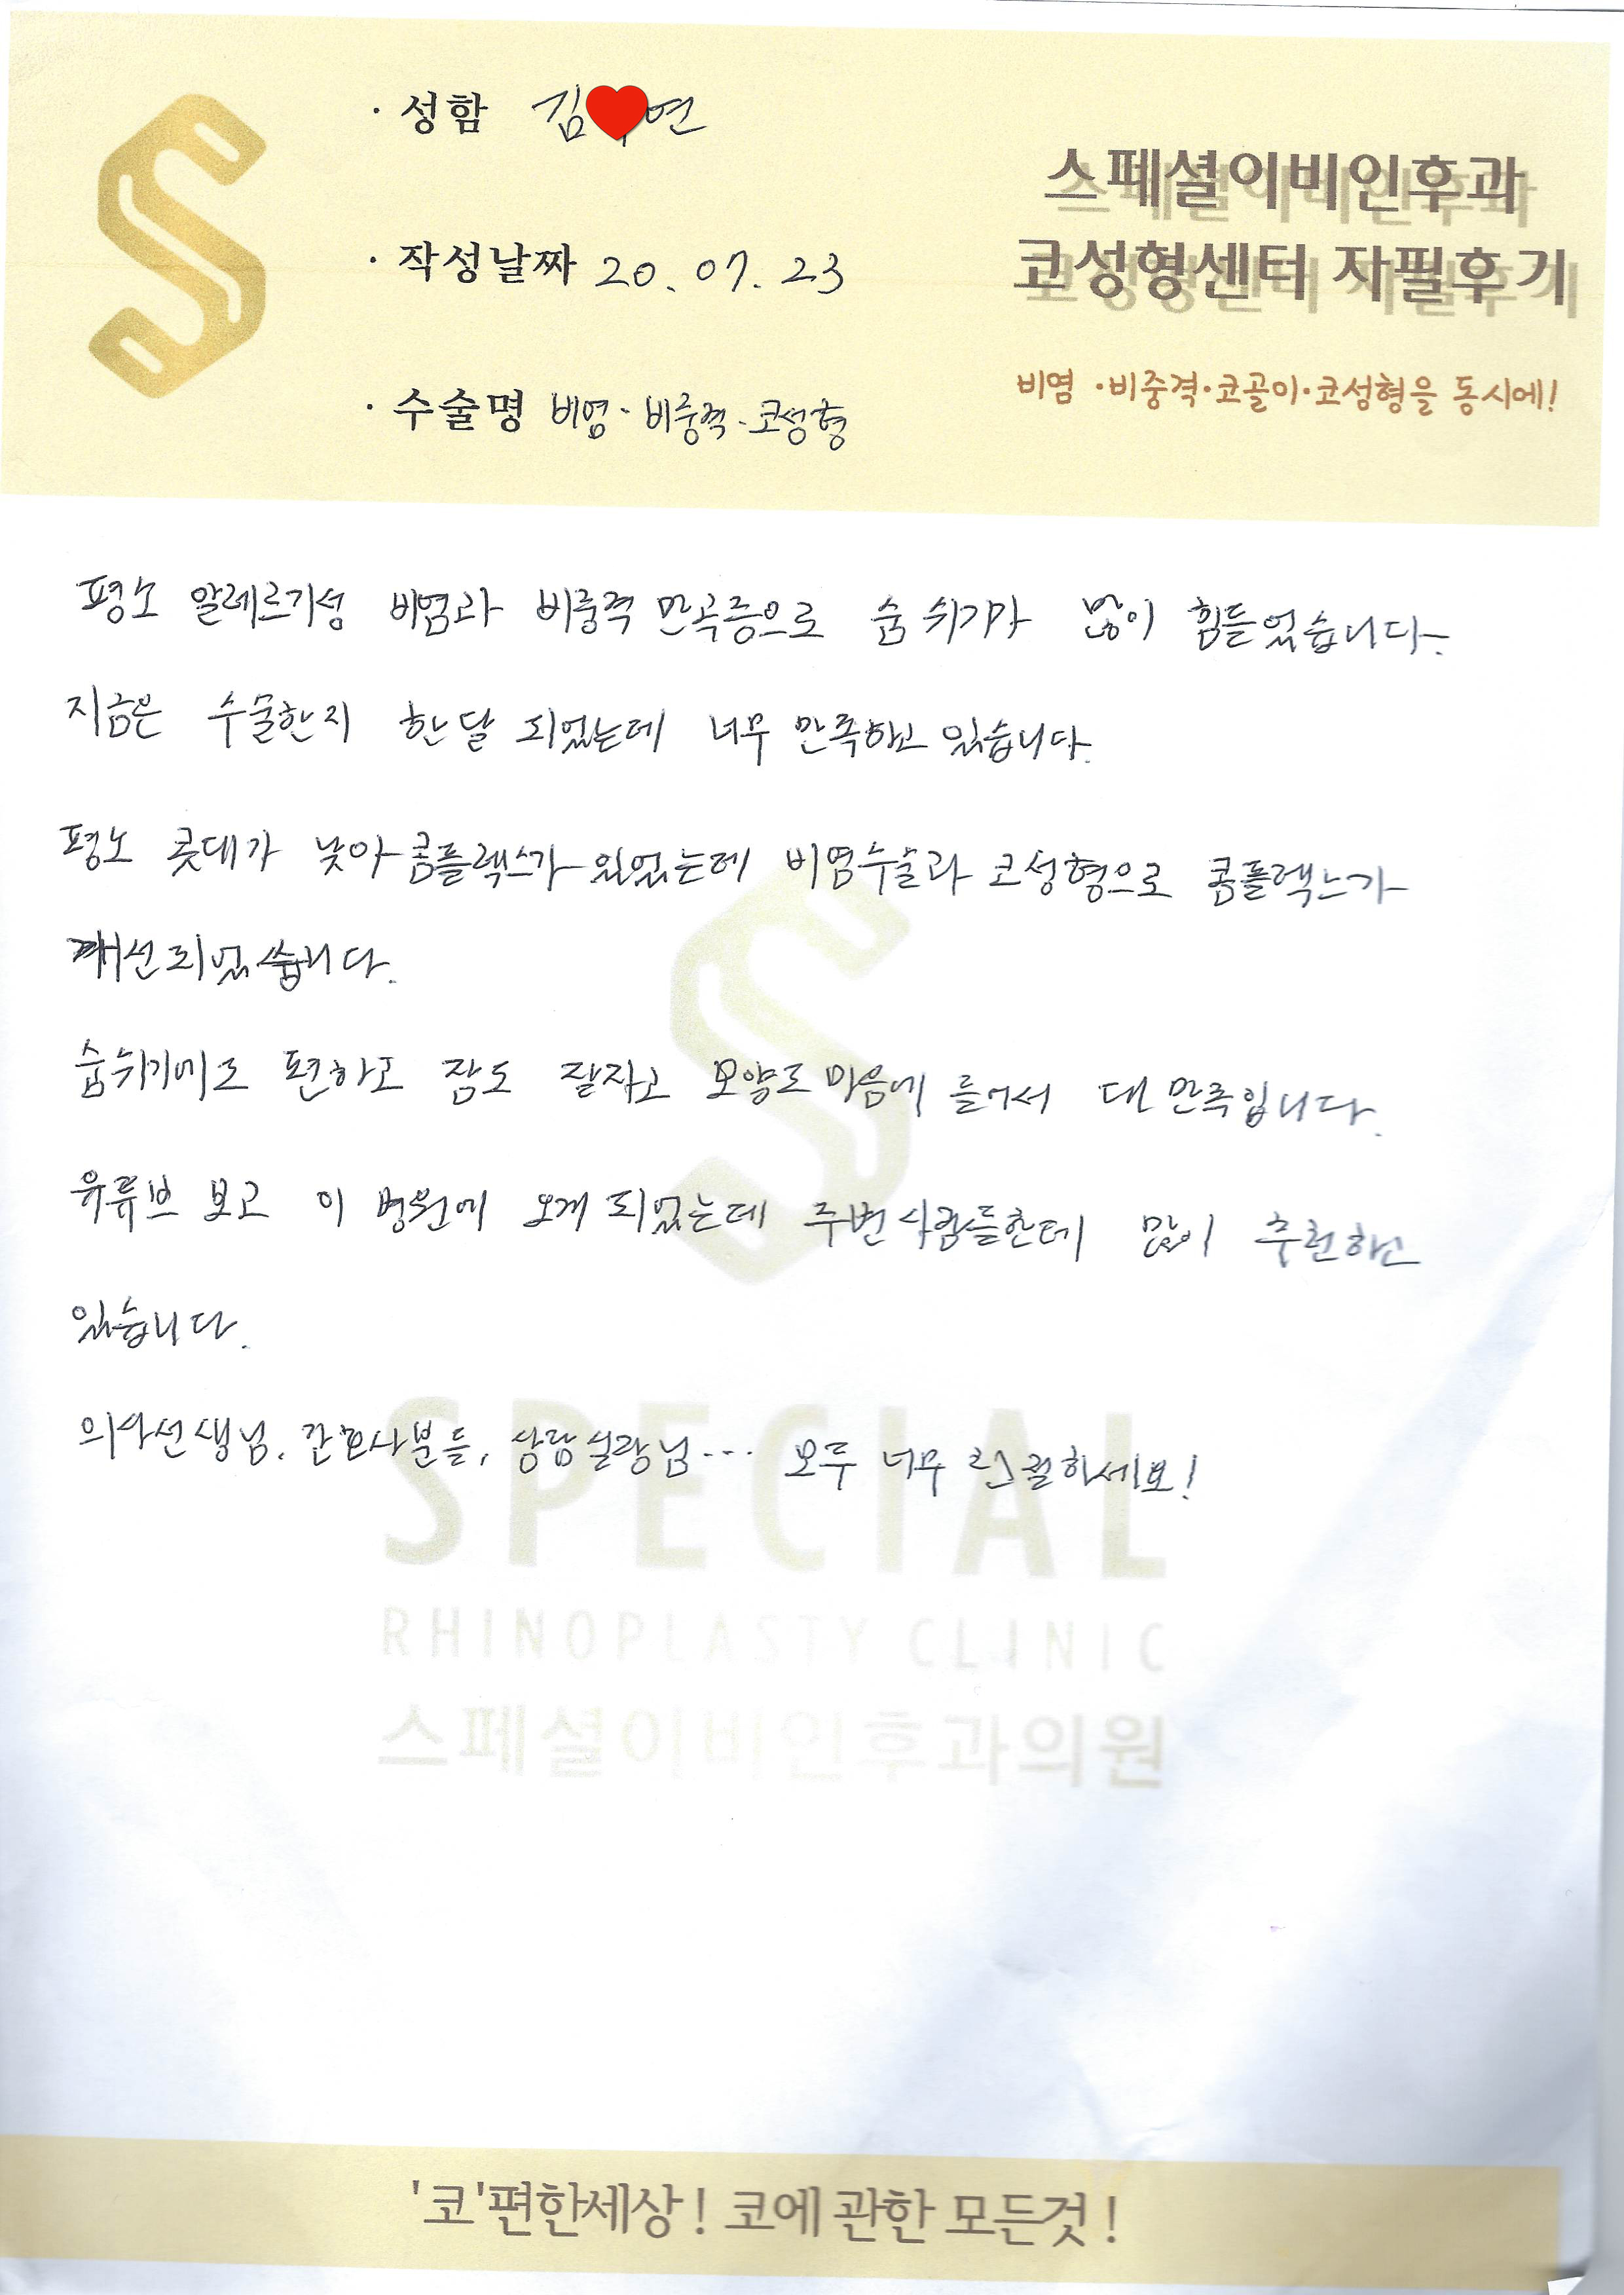 · 성함 김 연
· 작성날짜 20. 07. 23
· 수술명 비염 · 비중격 · 코성형
스페셜이비인후과
코성형센터 자필후기
비염 ·비중격·코골이·코성형을 동시에!
평소 알레르기성 비염과 비중격 만곡증으로 숨 쉬기가 많이 힘들었습니다.
지금은 수술한지 한달 되었는데 너무 만족하고 있습니다.
평소 콧대가 낮아 콤플렉스가 있었는데 비염수술과 코성형으로 콤플렉스가
개선되었습니다.
숨쉬기에도 편하고 잠도 잘자고 모양도 마음에 들어서 대 만족입니다.
유튜브 보고 이 병원에 오게 되었는데 주변사람들한테 많이 추천하고
있습니다.
의사선생님, 간호사분들, 상담실장님... 모두 너무 친절하세요!
SPECIAL
RHINOPLASTY CLINIC
스페셜이비인후과의원
'코'편한세상! 코에 관한 모든것!